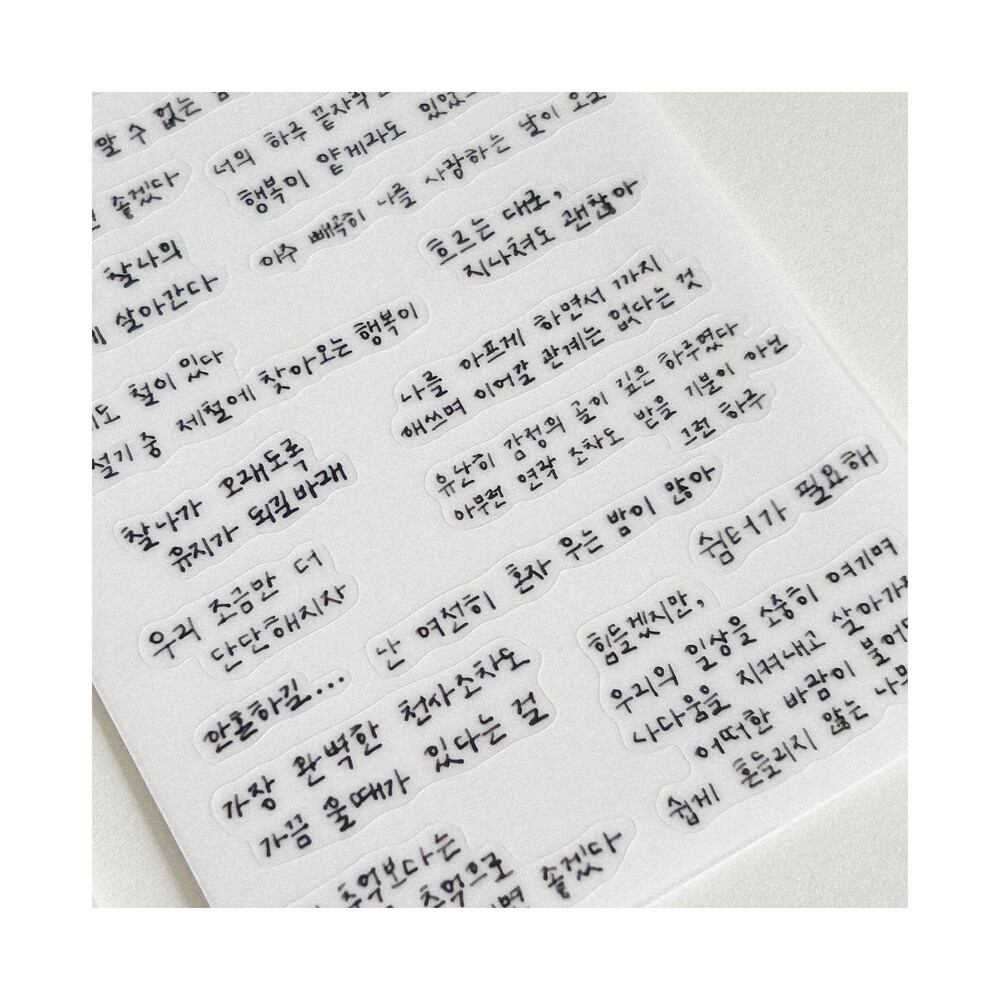 알 수 없는
너의 하루 끝자락
행복이 얕게라도 있었으
좋겠다
야수 빼곡히 나를 사랑하는 날이 오
흐르는 대로,
지나쳐도 괜찮아
찰나의
살아간다
나를 아프게 하면서 까지
애쓰며 이어갈 관계는 없다는 것
도 철이 있다
설기 중 제철에 찾아오는 행복이
유난히 감정의 골이 깊은 하루였다
아무런 연락 조차도 받을 기분이 아닌
그런 하루
찰나가 오래도록
유지가 되길바래
난 여전히 혼자 우는 밤이 많아
쉼터가 필요해
우리 조금만 더
단단해지자
힘들겠지만,
우리의 일상을 소중히 여기며
나다움을 지켜내고 살아가
어떠한 바람이 불어
쉽게 흔들리지 않는 나무
안온하길...
가장 완벽한 천사조차도
가끔 울때가 있다는 걸
추억보다는
추억으로
면 좋겠다